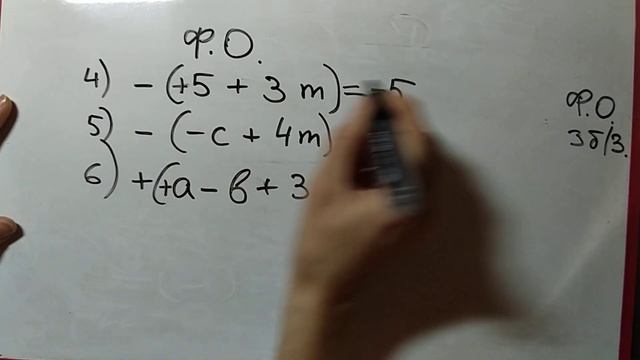 Ф.О.
4) - (+5 + 3 m) = -5
5) - (-c + 4m)
6) + (+a - b + 3
Ф.О.
3 б/з.